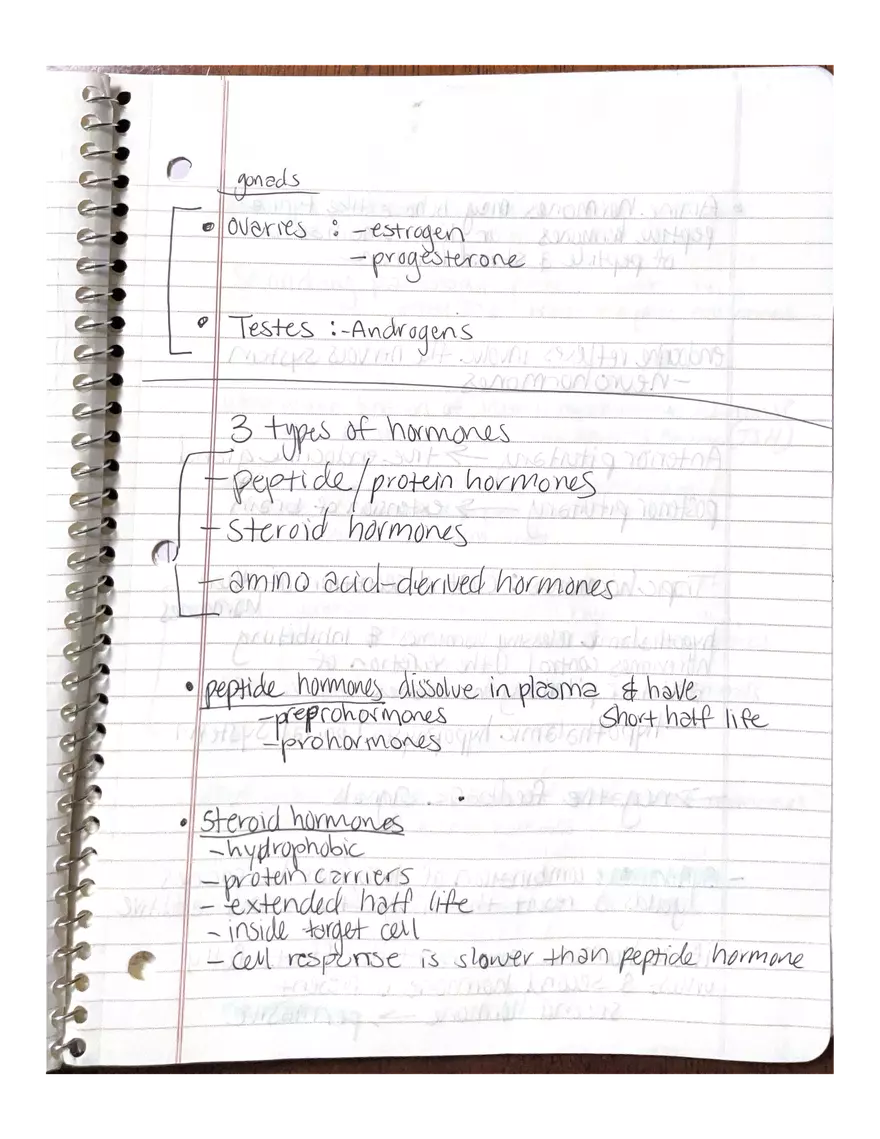 gonads
• ovaries : - estrogen
- progesterone
• Testes :- Androgens
3 types of hormones
- peptide/protein hormones
- steroid hormones
- amino acid-derived hormones
• peptide hormones dissolve in plasma & have
short half life
- preprohormones
- prohormones
• Steroid hormones
- hydrophobic
- protein carriers
- extended half life
- inside target cell
- cell response is slower than peptide hormone